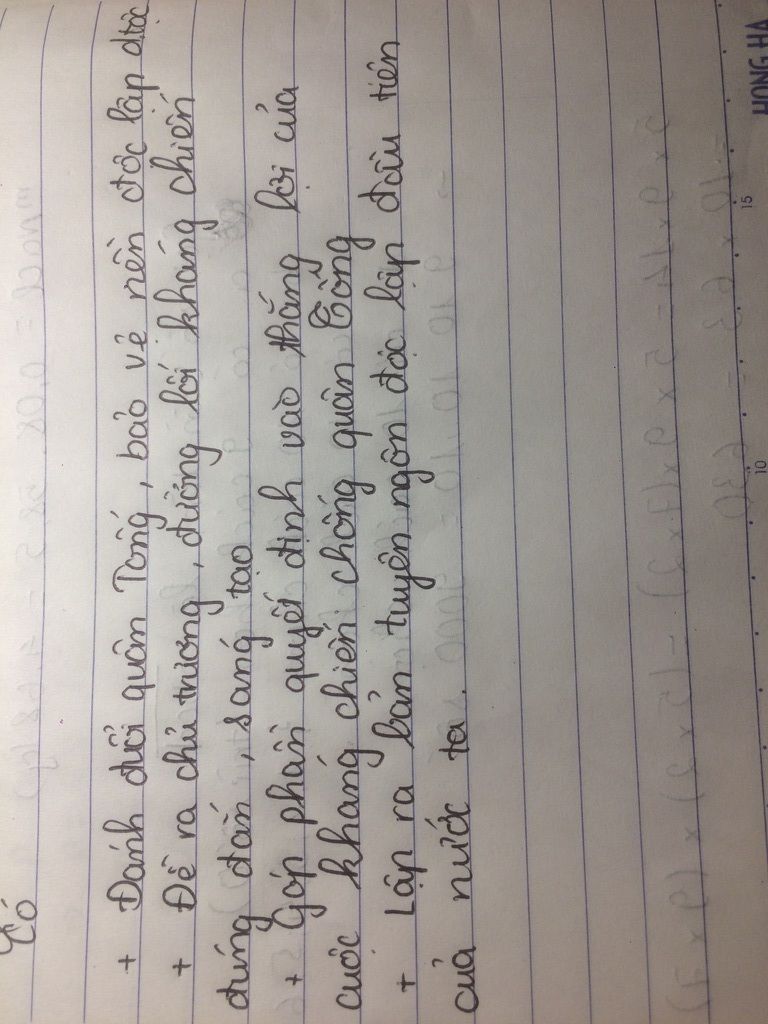 Có
+ Đánh đuổi quân Tống, bảo vệ nền độc lập d.tộc
+ Đề ra chủ trương, đường lối kháng chiến
đúng đắn, sáng tạo
+ Góp phần quyết định vào thắng lợi của
cuộc kháng chiến chống quân Tống
+ Lập ra bản tuyên ngôn độc lập đầu tiên
của nước ta.
10
15
HONG HA